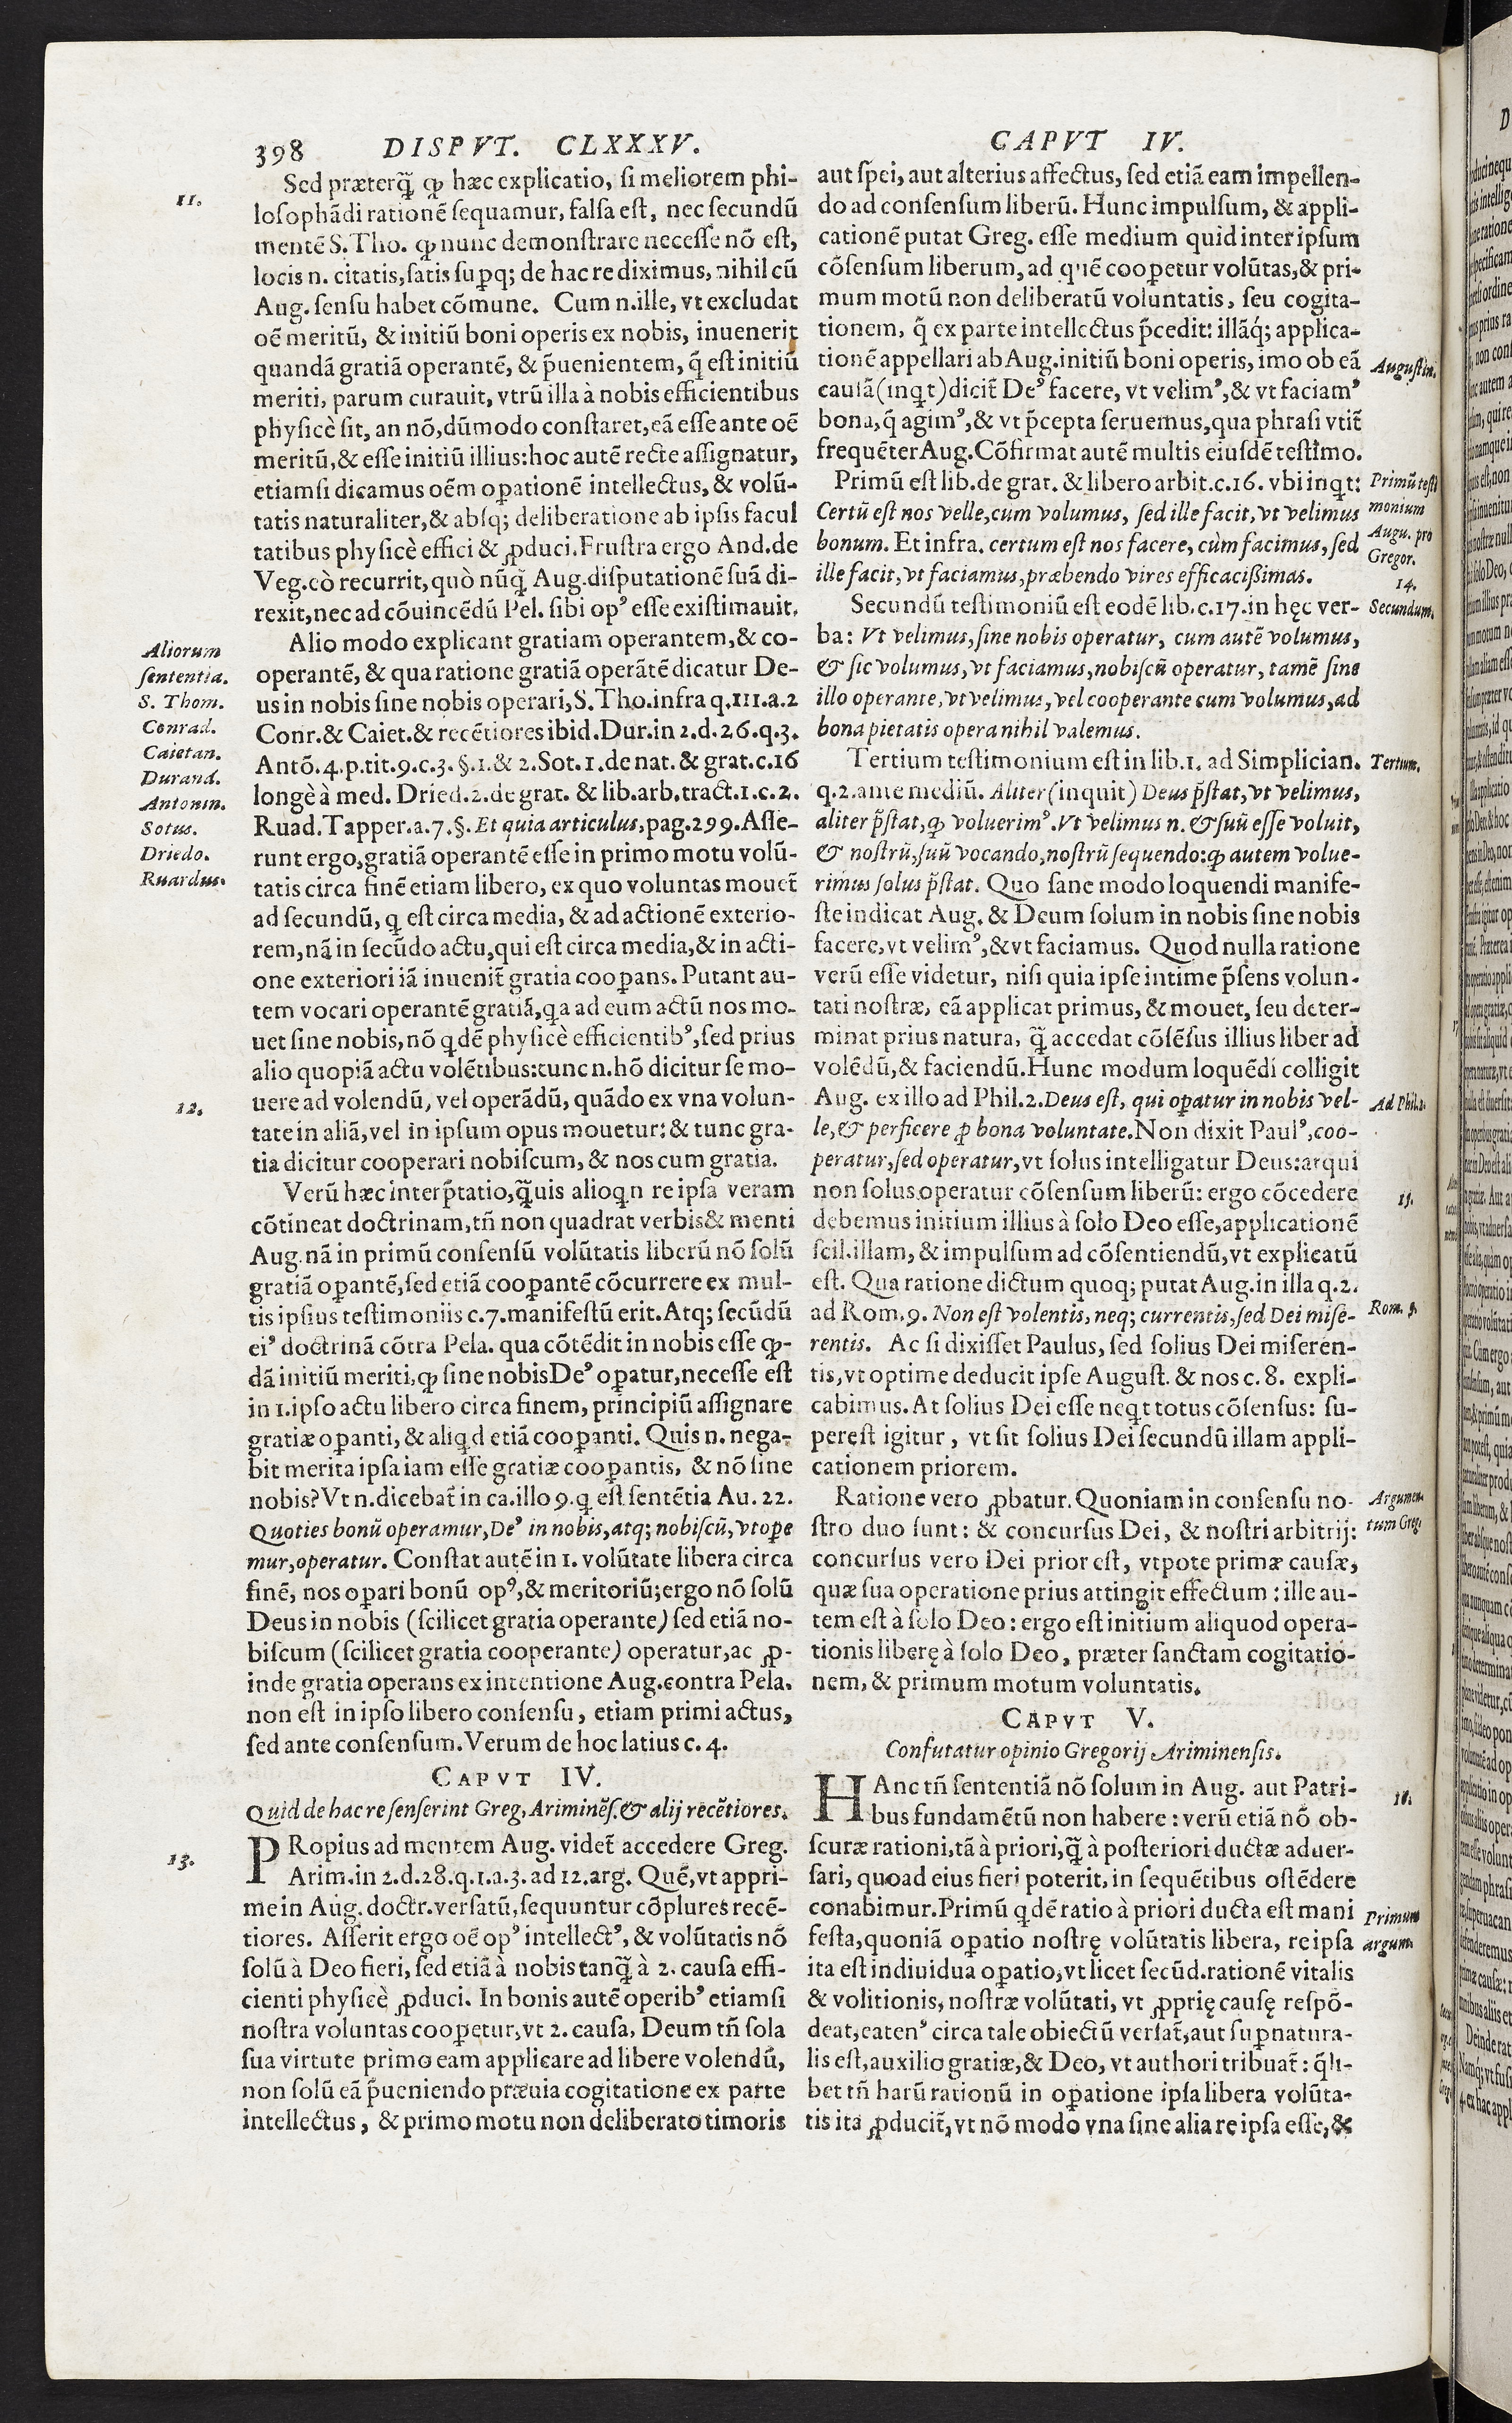 398 DISPVT. CLXXXV.
Sed præterq̃ ꝙ hæc explicatio, si meliorem phi-
losophãdi rationẽ sequamur, falsa est, nec secundũ
mentẽ S. Tho. ꝙ nunc demonstrare necesse nõ est,
locis n. citatis, satis suꝑq; de hac re diximus, nihil cũ
Aug. sensu habet cõmune. Cum n. ille, vt excludat
oẽ meritũ, & initiũ boni operis ex nobis, inuenerit
quandã gratiã operantẽ, & p̃uenientem, q̃ est initiũ
meriti, parum curauit, vtrũ illa à nobis efficientibus
physicè sit, an nõ, dũmodo constaret, eã esse ante oẽ
meritũ, & esse initiũ illius: hoc autẽ recte assignatur,
etiamsi dicamus oẽm oꝑationẽ intellectus, & volũ-
tatis naturaliter, & absq; deliberatione ab ipsis facul
tatibus physicè effici & ꝓduci. Frustra ergo And. de
Veg. eò recurrit, quò nũq̃ Aug. disputationẽ suã di-
rexit, nec ad cõuincẽdũ Pel. sibi opꝰ esse existimauit.
Alio modo explicant gratiam operantem, & co-
operantẽ, & qua ratione gratiã operãtẽ dicatur De-
us in nobis sine nobis operari, S. Tho. infra q. 111. a. 2
Conr. & Caiet. & recẽtiores ibid. Dur. in 2. d. 26. q. 3.
Antõ. 4. p. tit. 9. c. 3. §. 1. & 2. Sot. 1. de nat. & grat. c. 16
longè à med. Dried. 2. de grat. & lib. arb. tract. 1. c. 2.
Ruad. Tapper. a. 7. §. Et quia articulus, pag. 299. Asse-
runt ergo, gratiã operantẽ esse in primo motu volũ-
tatis circa finẽ etiam libero, ex quo voluntas mouet̃
ad secundũ, ꝗ est circa media, & ad actionẽ exterio-
rem, nã in secũdo actu, qui est circa media, & in acti-
one exteriori iã inuenit̃ gratia cooꝑans. Putant au-
tem vocari operantẽ gratiã, ꝗa ad eum actũ nos mo-
uet sine nobis, nõ ꝗdẽ physicè efficientibꝰ, sed prius
alio quopiã actu volẽtibus: tunc n. hõ dicitur se mo-
uere ad volendũ, vel operãdũ, quãdo ex vna volun-
tate in aliã, vel in ipsum opus mouetur: & tunc gra-
tia dicitur cooperari nobiscum, & nos cum gratia.
Verũ hæc interp̃tatio, q̃uis alioꝗn re ipsa veram
cõtineat doctrinam, tñ non quadrat verbis & menti
Aug. nã in primũ consensũ volũtatis liberũ nõ solũ
gratiã oꝑantẽ, sed etiã cooꝑantẽ cõcurrere ex mul-
tis ipsius testimoniis c. 7. manifestũ erit. Atq; secũdũ
eiꝰ doctrinã cõtra Pela. qua cõtẽdit in nobis esse ꝙ-
dã initiũ meriti, ꝙ sine nobis Deꝰ oꝑatur, necesse est
in 1. ipso actu libero circa finem, principiũ assignare
gratiæ oꝑanti, & aliꝗd etiã cooꝑanti. Quis n. nega-
bit merita ipsa iam esse gratiæ cooꝑantis, & nõ sine
nobis? Vt n. dicebat̃ in ca. illo 9. ꝗ est sentẽtia Au. 22.
Quoties bonũ operamur, Deꝰ in nobis, atq; nobiscũ, vt oꝑe
mur, operatur. Constat autẽ in 1. volũtate libera circa
finẽ, nos oꝑari bonũ opꝰ, & meritoriũ; ergo nõ solũ
Deus in nobis (scilicet gratia operante) sed etiã no-
biscum (scilicet gratia cooperante) operatur, ac ꝓ-
inde gratia operans ex intentione Aug. contra Pela.
non est in ipso libero consensu, etiam primi actus,
sed ante consensum. Verum de hoc latius c. 4.
CAPVT IV.
Quid de hac re senserint Greg, Ariminẽs. & alij recẽtiores.
PRopius ad mentem Aug. videt̃ accedere Greg.
Arim. in 2. d. 28. q. 1. a. 3. ad 12. arg. Quẽ, vt appri-
me in Aug. doctr. versatũ, sequuntur cõplures recẽ-
tiores. Asserit ergo oẽ opꝰ intellectꝰ, & volũtatis nõ
solũ à Deo fieri, sed etiã à nobis tanq̃ à 2. causa effi-
cienti physicè ꝓduci. In bonis autẽ operibꝰ etiamsi
nostra voluntas cooꝑetur, vt 2. causa, Deum tñ sola
sua virtute primo eam applicare ad libere volendũ,
non solũ eã p̃ueniendo præuia cogitatione ex parte
intellectus, & primo motu non deliberato timoris
11.
Aliorum
sententia.
S. Thom.
Conrad.
Caietan.
Durand.
Antonin.
Sotus.
Driedo.
Ruardus.
12.
13.
CAPVT IV.
aut sp̃ei, aut alterius affectus, sed etiã eam impellen-
do ad consensum liberũ. Hunc impulsum, & appli-
cationẽ putat Greg. esse medium quid inter ipsum
cõsensum liberum, ad quẽ cooꝑetur volũtas, & pri-
mum motũ non deliberatũ voluntatis, seu cogita-
tionem, q̃ ex parte intellectus p̃cedit: illãq́; applica-
tionẽ appellari ab Aug. initiũ boni operis, imo ob eã
causã (inꝗt) dicit̃ Deꝰ facere, vt velimꝰ, & vt faciamꝰ
bona, q̃ agimꝰ, & vt p̃cepta seruemus, qua phrasi vtit̃
frequẽter Aug. Cõfirmat autẽ multis eiusdẽ testimo.
Primũ est lib. de grat. & libero arbit. c. 16. vbi inꝗt:
Certũ est nos velle, cum volumus, sed ille facit, vt velimus
bonum. Et infra. certum est nos facere, cùm facimus, sed
ille facit, vt faciamus, præbendo vires efficacißimas.
Secundũ testimoniũ est eodẽ lib. c. 17. in hęc ver-
ba: Vt velimus, sine nobis operatur, cum autẽ volumus,
& sic volumus, vt faciamus, nobiscũ operatur, tamẽ sine
illo operante, vt velimus, vel cooperante cum volumus, ad
bona pietatis opera nihil valemus.
Tertium testimonium est in lib. 1. ad Simplician.
q. 2. ante mediũ. Aliter (inquit) Deus p̃stat, vt velimus,
aliter p̃stat, ꝙ voluerimꝰ. Vt velimus n. & suũ esse voluit,
& nostrũ, suũ vocando, nostrũ sequendo: ꝙ autem volue-
rimus solus p̃stat. Quo sane modo loquendi manife-
ste indicat Aug. & Deum solum in nobis sine nobis
facere, vt velimꝰ, & vt faciamus. Quod nulla ratione
verũ esse videtur, nisi quia ipse intime p̃sens volun-
tati nostræ, eã applicat primus, & mouet, seu deter-
minat prius natura, q̃ accedat cõsẽsus illius liber ad
volẽdũ, & faciendũ. Hunc modum loquẽdi colligit
Aug. ex illo ad Phil. 2. Deus est, qui oꝑatur in nobis vel-
le, & perficere ꝓ bona voluntate. Non dixit Paulꝰ, coo-
peratur, sed operatur, vt solus intelligatur Deus: atqui
non solus operatur cõsensum liberũ: ergo cõcedere
debemus initium illius à solo Deo esse, applicationẽ
scil. illam, & impulsum ad cõsentiendũ, vt explicatũ
est. Qua ratione dictum quoq; putat Aug. in illa q. 2.
ad Rom. 9. Non est volentis, neq; currentis, sed Dei mise-
rentis. Ac si dixisset Paulus, sed solius Dei miseren-
tis, vt optime deducit ipse August. & nos c. 8. expli-
cabimus. At solius Dei esse neꝗt totus cõsensus: su-
perest igitur, vt sit solius Dei secundũ illam appli-
cationem priorem.
Ratione vero ꝓbatur. Quoniam in consensu no-
stro duo sunt: & concursus Dei, & nostri arbitrij:
concursus vero Dei prior est, vtpote primæ causæ,
quæ sua operatione prius attingit effectum: ille au-
tem est à solo Deo: ergo est initium aliquod opera-
tionis liberę à solo Deo, præter sanctam cogitatio-
nem, & primum motum voluntatis.
CAPVT V.
Confutatur opinio Gregorij Ariminensis.
HAnc tñ sententiã nõ solum in Aug. aut Patri-
bus fundamẽtũ non habere: verũ etiã nõ ob-
scuræ rationi, tã à priori, q̃ à posteriori ductæ aduer-
sari, quoad eius fieri poterit, in sequẽtibus ostẽdere
conabimur. Primũ ꝗdẽ ratio à priori ducta est mani
festa, quoniã oꝑatio nostrę volũtatis libera, re ipsa
ita est indiuidua oꝑatio, vt licet secũd. rationẽ vitalis
& volitionis, nostræ volũtati, vt ꝓprię causę respõ-
deat, eatenꝰ circa tale obiectũ versat̃, aut suꝑnatura-
lis est, auxilio gratiæ, & Deo, vt authori tribuat̃: q̃li-
bet tñ harũ rationũ in oꝑatione ipsa libera volũta-
tis ita ꝓducit̃, vt nõ modo vna sine alia re ipsa esse, &
Augustin.
Primũ testi
monium
Augu. pro
Gregor.
14.
Secundum.
Tertium.
Ad Phil. 2.
15.
Rom. 9.
Argumen-
tum Greg.
Primum
argum.